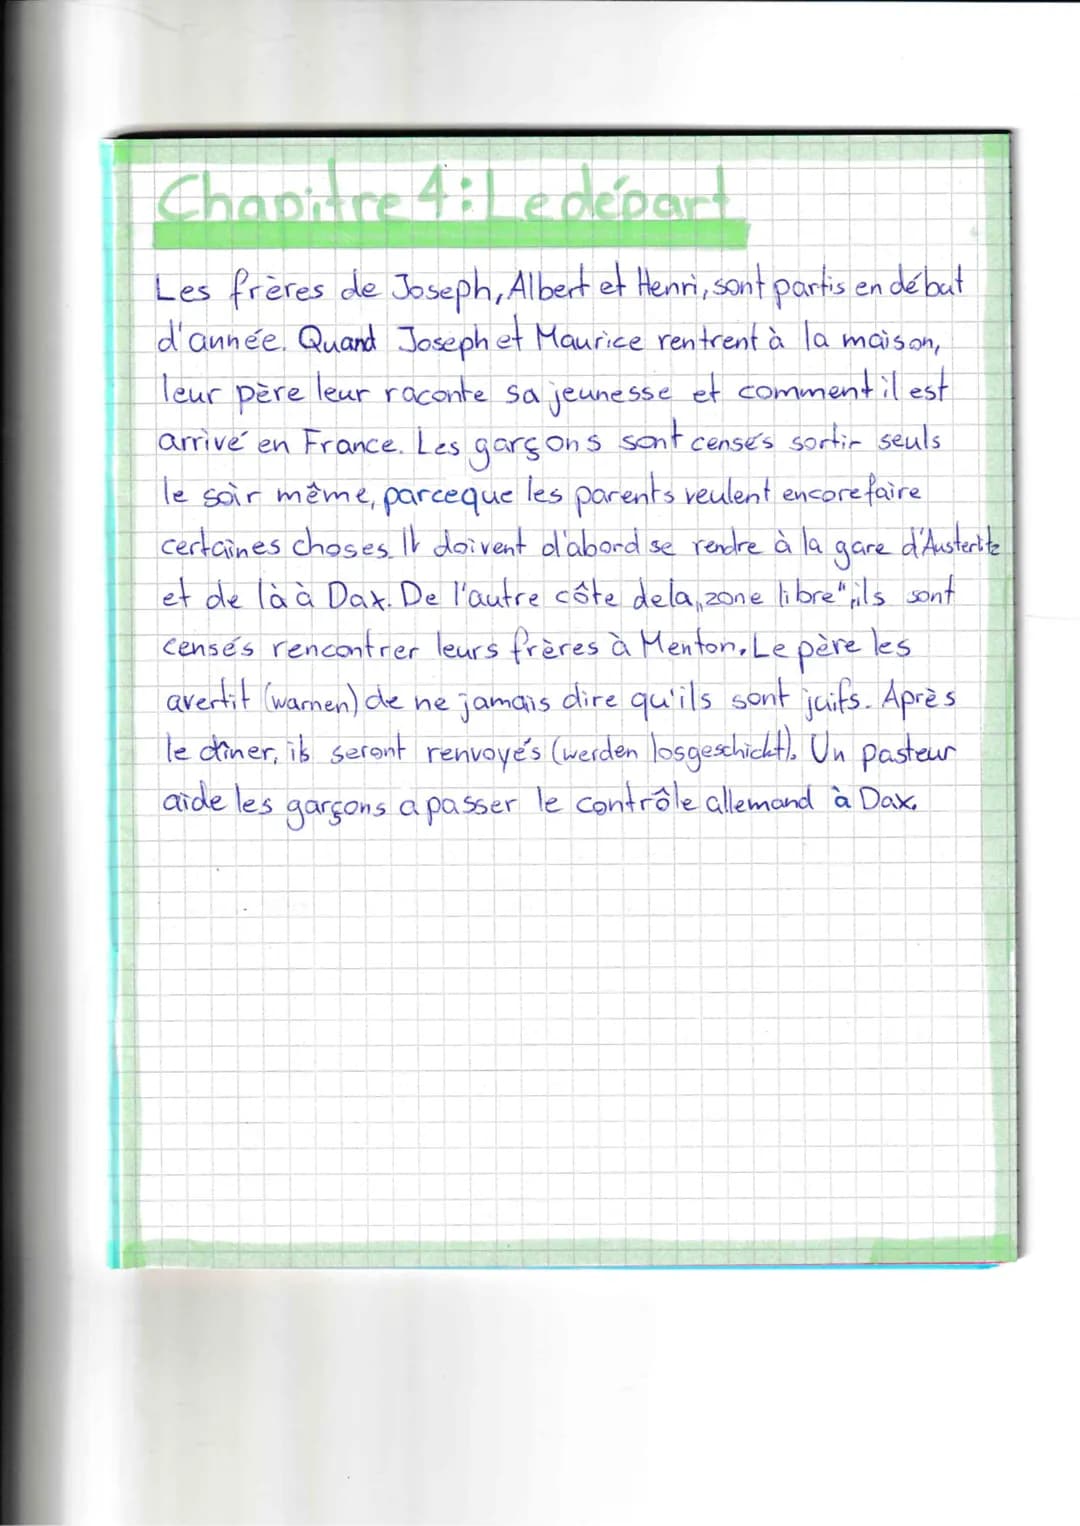 Chapitre 4: Le départ
Les frères de Joseph, Albert et Henri, sont partis en début
d'année. Quand Joseph et Maurice rentrent à la maison,
leur père leur raconte sa jeunesse et comment il est
arrivé en France. Les garçons sont censés sortir seuls
le soir même, parceque les parents veulent encore faire
certaines choses. Ils doivent d'abord se rendre à la gare d'Austerlitz
et de là à Dax. De l'autre côte de la „zone libre", ils sont
censés rencontrer leurs frères à Menton. Le père les
avertit (warnen) de ne jamais dire qu'ils sont juifs. Après
le dîner, ils seront renvoyés (werden losgeschickt). Un pasteur
aide les garçons a passer le contrôle allemand à Dax.